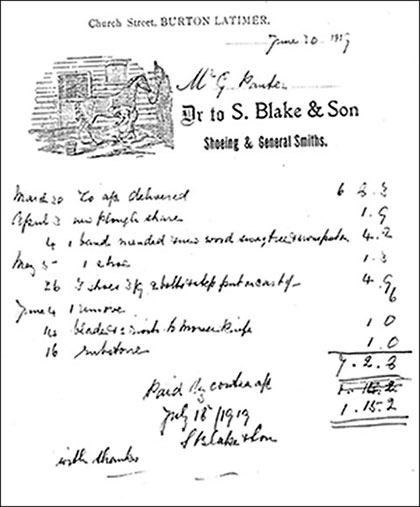 Church Street, BURTON LATIMER.
June 20 1919
Mr G
Dr to S. Blake & Son
Shoeing & General Smiths.
March 20 To a/c delivered 6 2.3
April 3 new plough share 1.9
4 1 band mended & new wood 4.2
May 5 1 shoe 1.3
26 3 shoes & step put on cart 4.9
June 4 1 remove 6
14 blade 1 0
16 rubstone 1.0
7.2.3
1.15.2
1.15.2
Paid by contra a/c
July 18/1919
S Blake & Son
with thanks